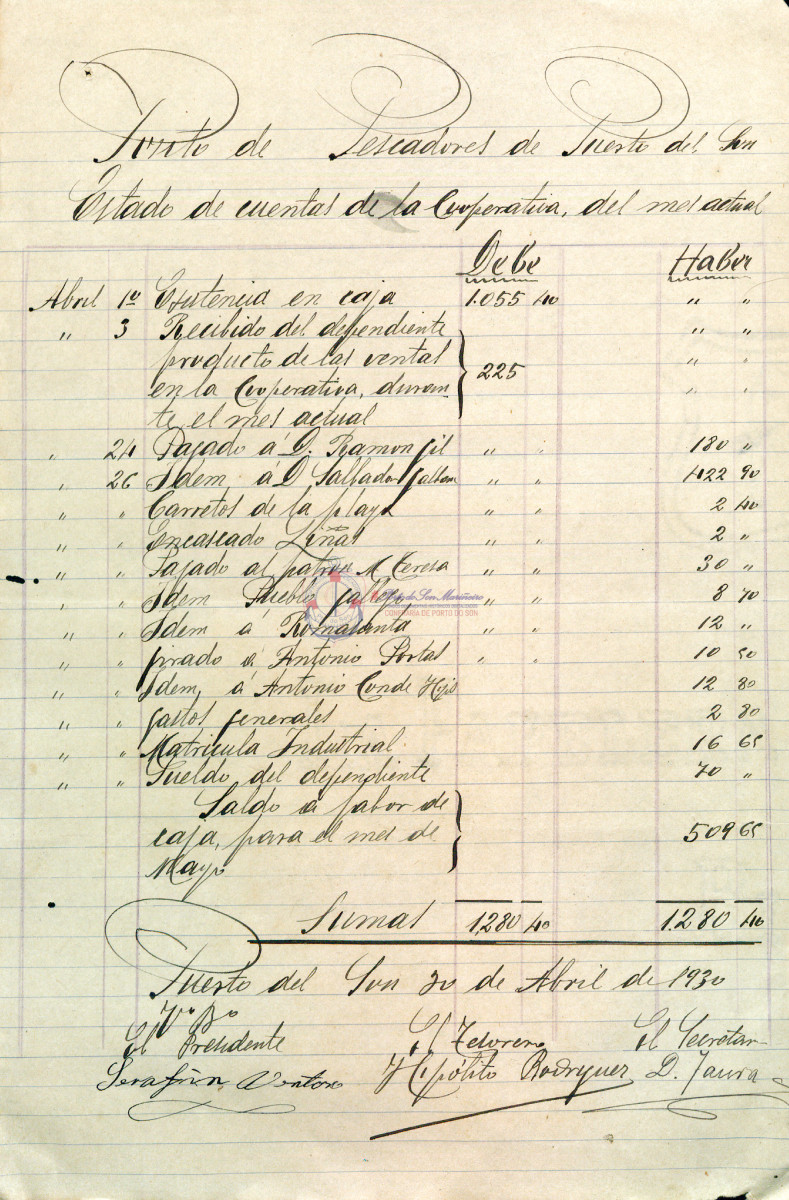 Posito de Pescadores de Puerto del Son
Estado de cuentas de la Cooperativa, del mes actual
Debe Haber
Abril 1º Existencia en caja 1.055 40 " "
" 3 Recibido del dependiente " "
producto de las ventas 225 " "
en la Cooperativa, duran- " "
te el mes actual
" 24 Pagado á D. Ramon Gil " " 180 "
" 26 Idem á D Salbador " " 422 90
" " Carretos de la playa " " 2 40
" " Encascado Liñas " " 2 "
" " Pagado al patron M. Teresa " " 30 "
" " Idem Pueblo Gallego " " 8 70
" " Idem a Romasanta " " 12 "
" " Girado á Antonio Portas " " 10 50
" " Idem, á Antonio Conde Hijo 12 80
" " Gastos generales 2 80
" " Matricula Industrial. 16 65
" " Sueldo del dependiente 70 "
Saldo a fabor de
caja, para el mes de 509 65
Mayo
Sumas 1,280 40 1.280 40
Puerto del Son 30 de Abril de 1930
Vº Bº
El Presidente El Tesorero El Secretar
Serafin Hipólito Rodriguez D.
Porto do Son Mariñeiro
CONFRARÍA DE PORTO DO SON